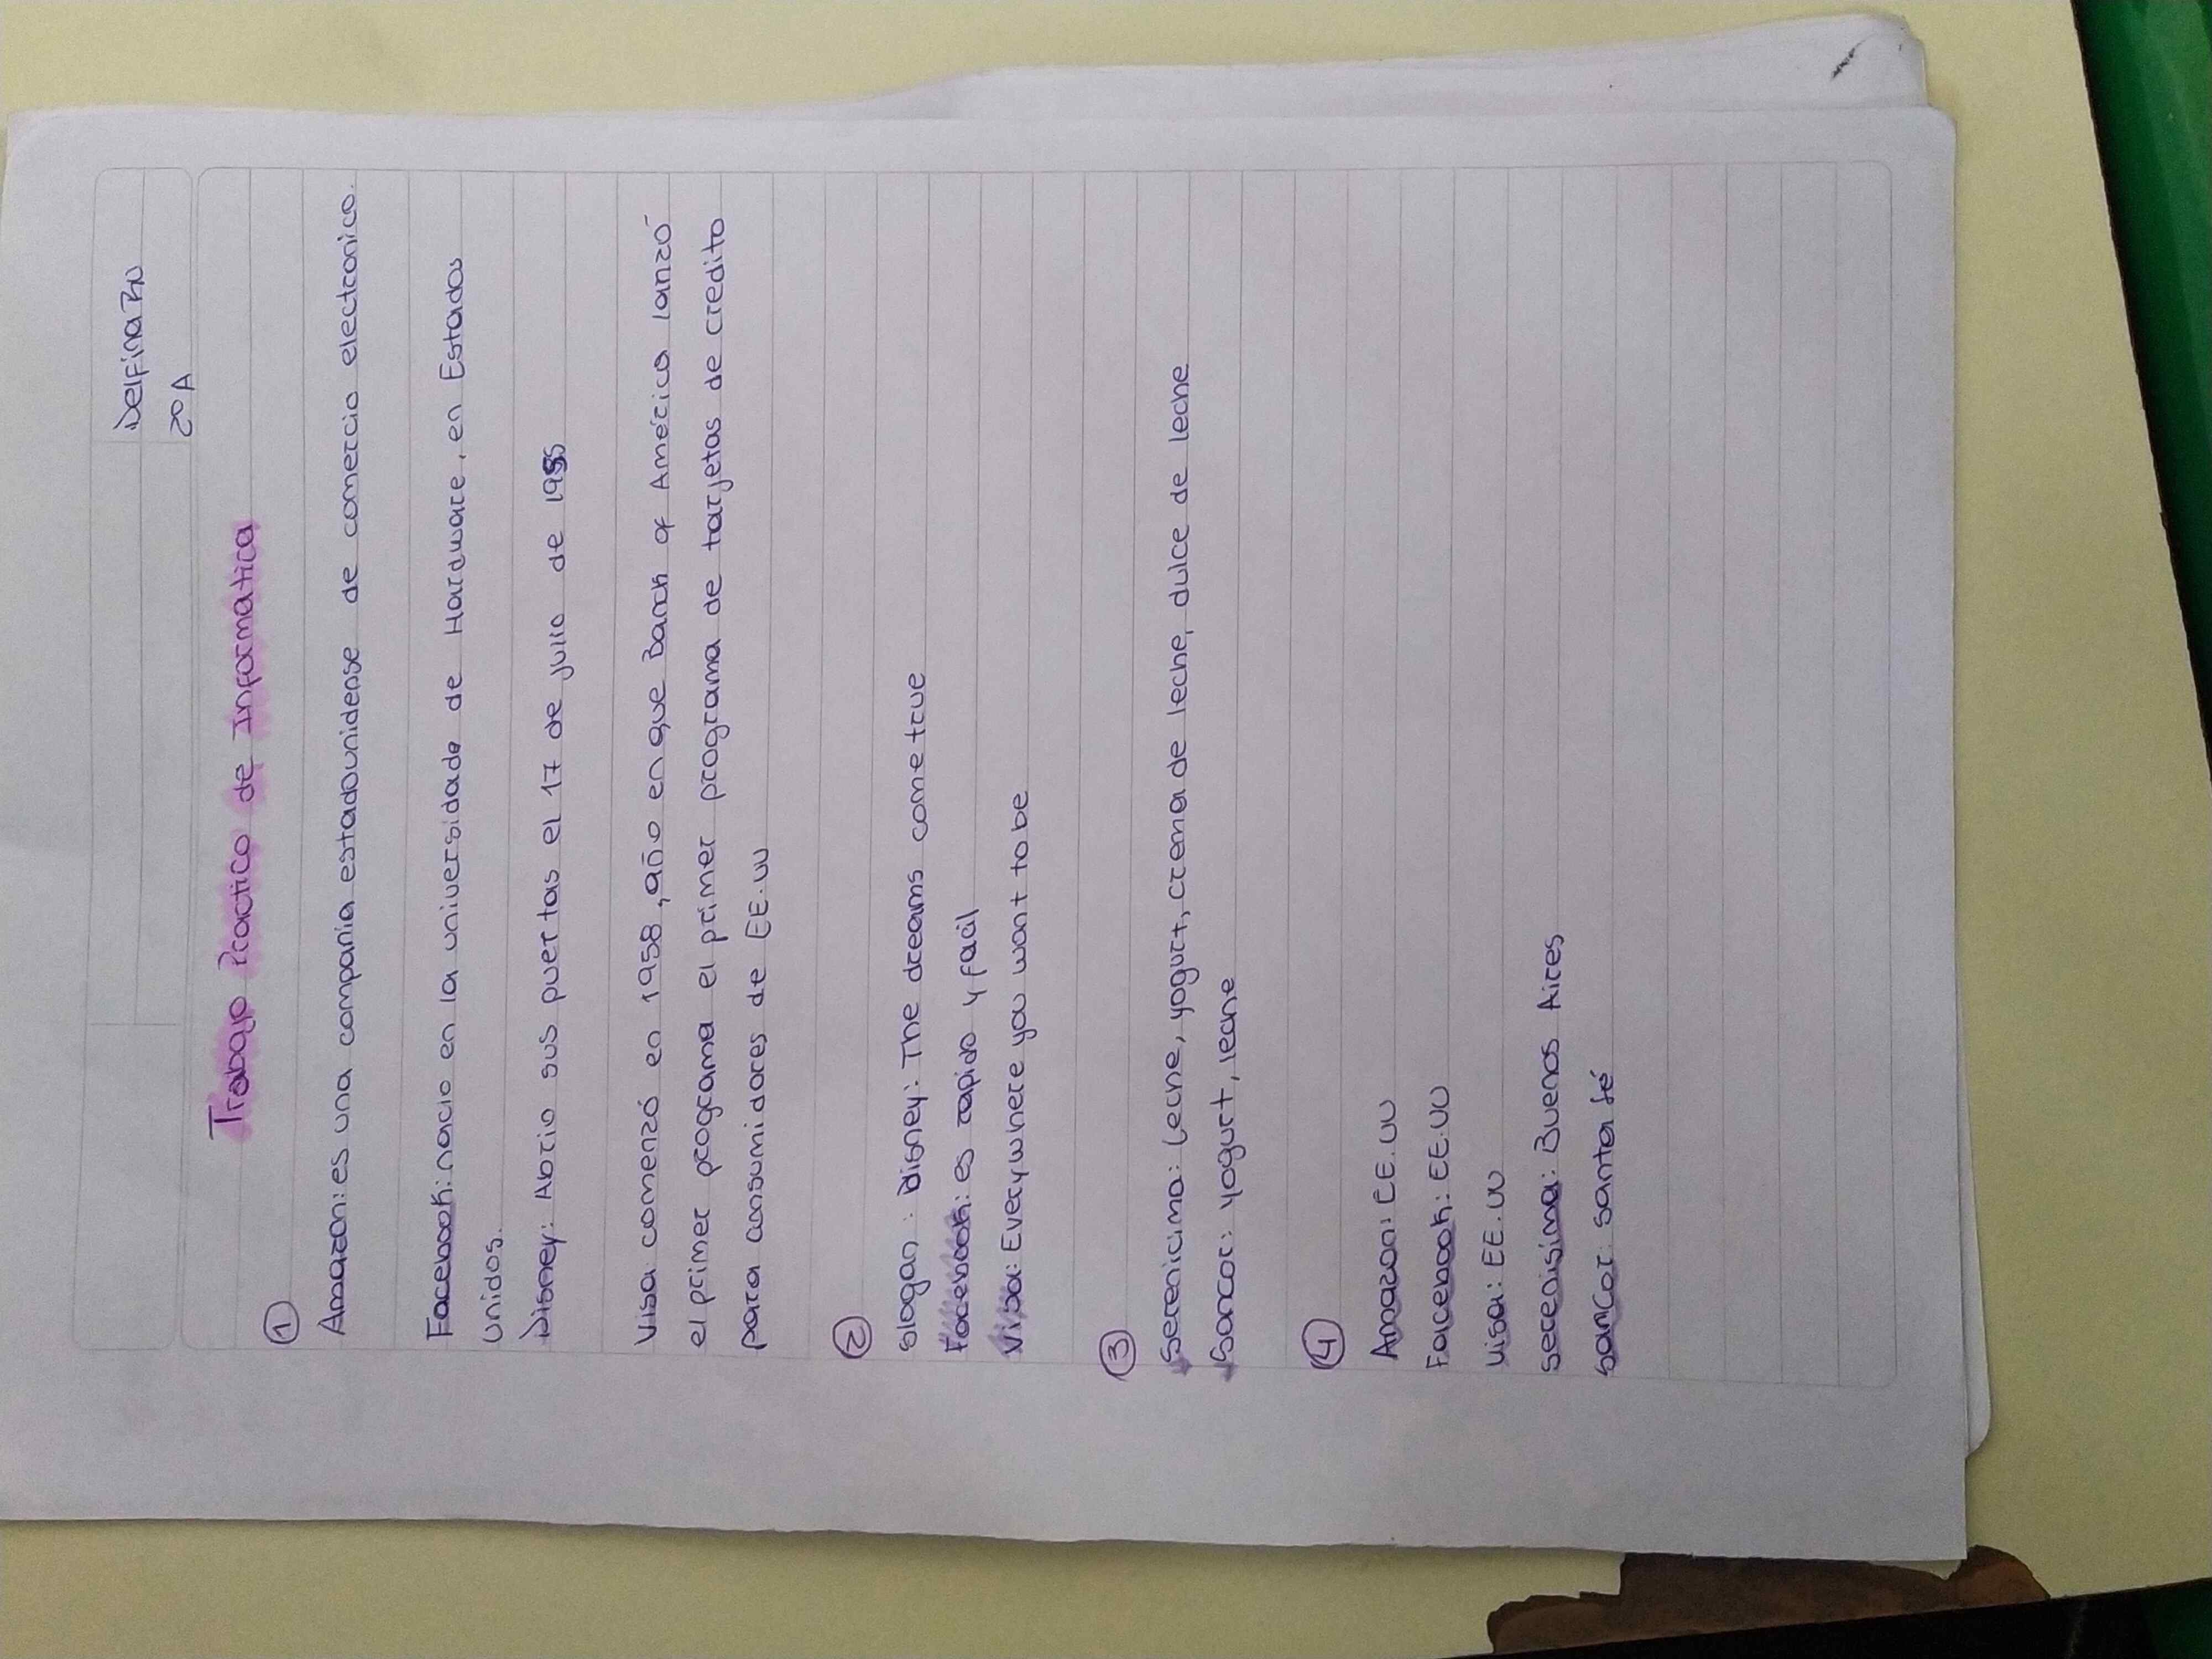 Delfina
2º A
Trabajo Practico de Informatica
①
Amazon: es una compania estadounidense de comercio electronico.
Facebook: nacio en la universidade de Hardware, en Estados
unidos.
Disney: Abrio sus puertas el 17 de julio de 1955
Visa comenzó en 1958, año en que Banck of América lanzó
el primer programa el primer programa de tarjetas de credito
para consumidores de EE.UU
②
slogan: Disney: The dreams come true
Facebook: es rapido y facil
Visa: Everywhere you want to be
③
Serenicima: leche, yogurt, crema de leche, dulce de leche
Sancor: yogurt, leche
④
Amazon: EE.UU
Facebook: EE.UU
Visa: EE.UU
serenisima: Buenos Aires
sanCor: santa fé